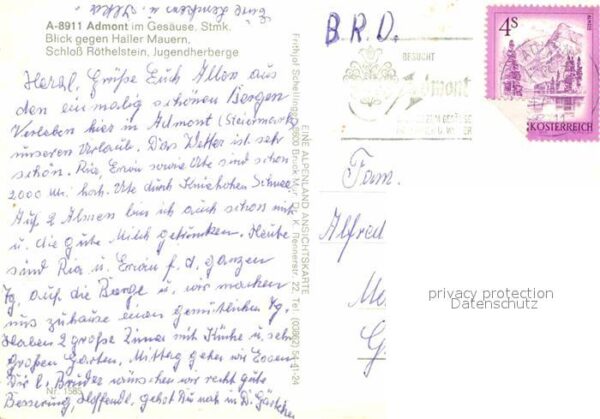 A-8911 Admont im Gesäuse, Stmk.
Blick gegen Haller Mauern,
Schloß Röthelstein, Jugendherberge
Herzl. Grüße Euch Allen aus
den einmalig schönen Bergen
Verleben hier in Admont (Steiermark)
unseren Urlaub. Das Wetter ist sehr
schön. Ria, Erwin sowie Ute sind schon
2000 m. hoch. Ute durch Kniehohen Schnee.
Auf 2 Almen bin ich auch schon mit
u. die gute Milch getrunken. Heute
sind Ria u. Erwin f. d. ganzen
Tg. auf die Berge u. wir machen
uns zuhause einen gemütlichen Tg.
Haben 2 große Zimmer mit Küche u. sehr
großen Garten. Mittag gehen wir Essen
Dir l. Bruder wünschen wir recht gute
Besserung, Hoffentl. gehst Du nah in D. Gärtchen
Nr. 1585
Frithjof Schelling, 8600 Bruck/Mur, Dr. K. Rennerstr. 22, Tel. (03862) 54-41-24
EINE ALPENLAND ANSICHTSKARTE
B.R.D.
BESUCHT
Admont
4S
ÖSTERREICH
Fam.
Alfred
privacy protection
Datenschutz